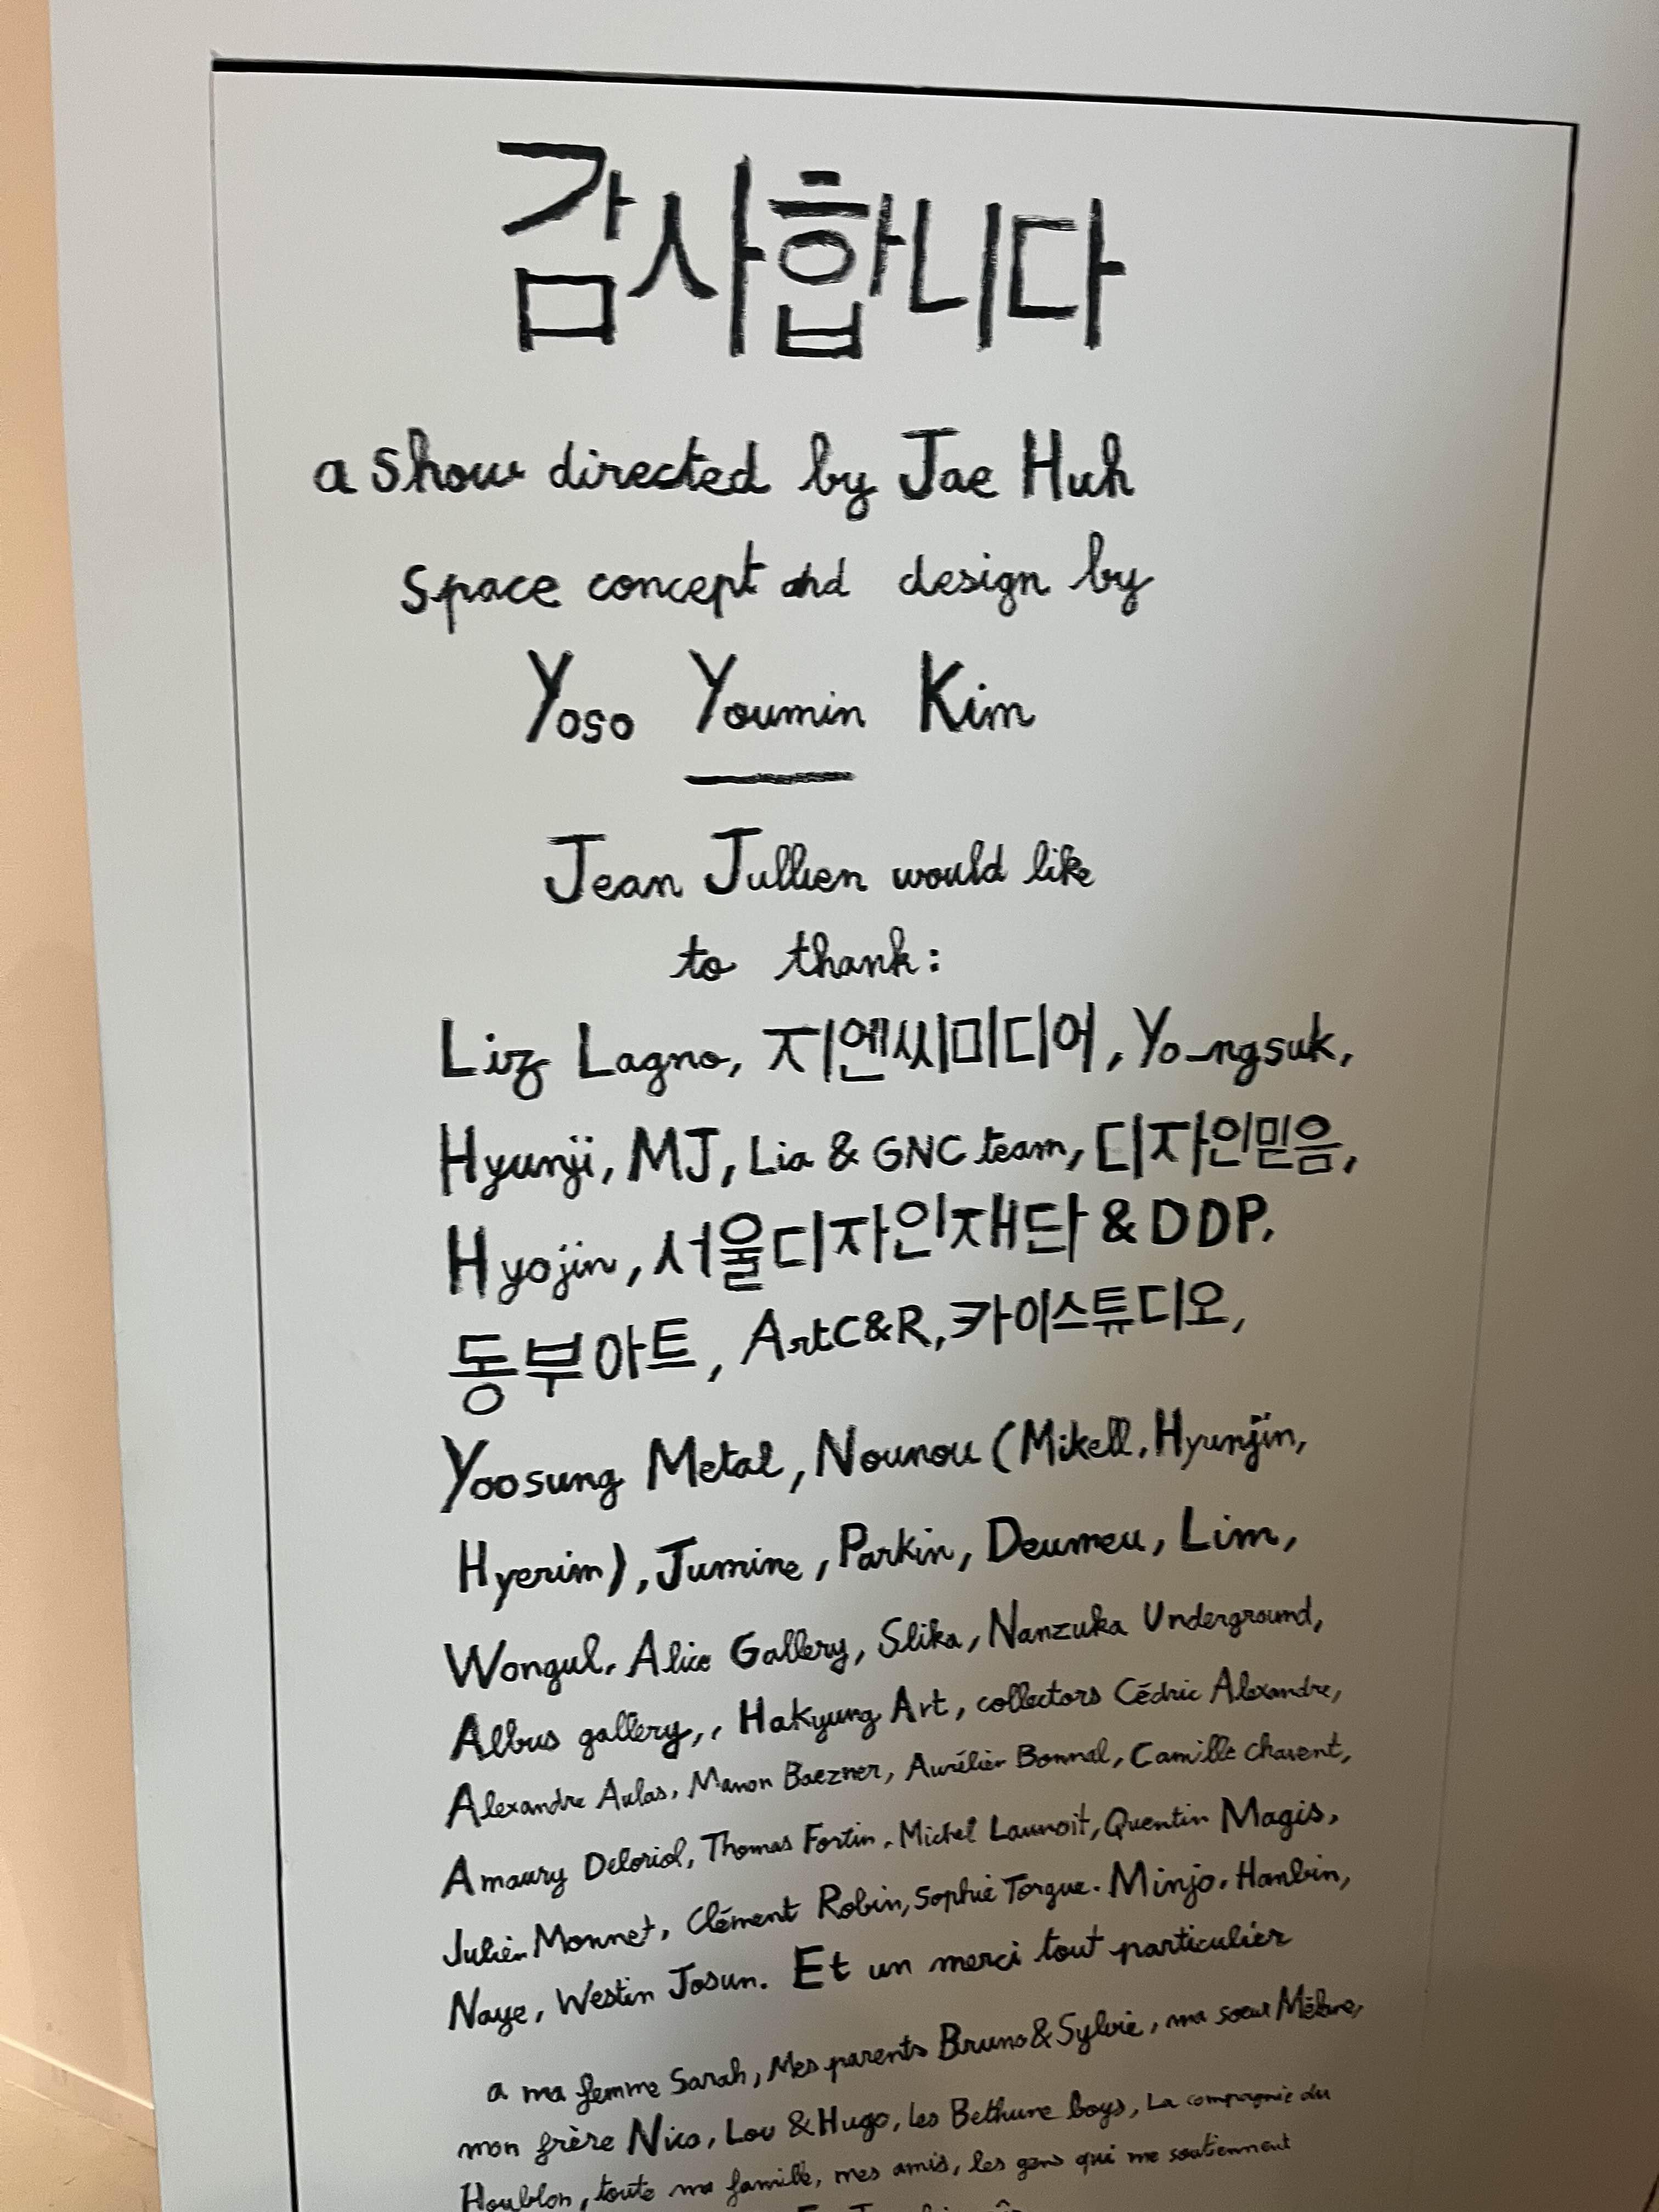 감사합니다
a show directed by Jae Huh
space concept and design by
Yoso Youmin Kim
Jean Jullien would like
to thank:
Liz Lagno, 지엔씨미디어, Yo_ngsuk,
Hyunji, MJ, Lia & GNC team, 디자인믿음,
Hyojin, 서울디자인재단 & DDP,
동부아트, ArtC&R, 카이스튜디오,
Yoosung Metal, Nounou (Mikell, Hyunjin,
Hyerim), Jumine, Parkin, Deumeu, Lim,
Wongul, Alice Gallery, Slika, Nanzuka Underground,
Albus gallery,, Hakyung Art, collectors Cédric Alexandre,
Alexandre Aulas, Manon Baezner, Aurélien Bonnal, Camille Charent,
Amaury Deloriol, Thomas Fortin, Michel Launoit, Quentin Magis,
Julien Monnet, Clément Robin, Sophie Torgue. Minjo, Hanbin,
Naye, Westin Josun. Et un merci tout particulier
a ma femme Sarah, Mes parents Bruno & Sylvie, ma soeur
mon frère Nico, Lou & Hugo, les Bethune boys, La compagnie du
Houblon, toute ma famille, mes amis, les gens qui me soutiennent